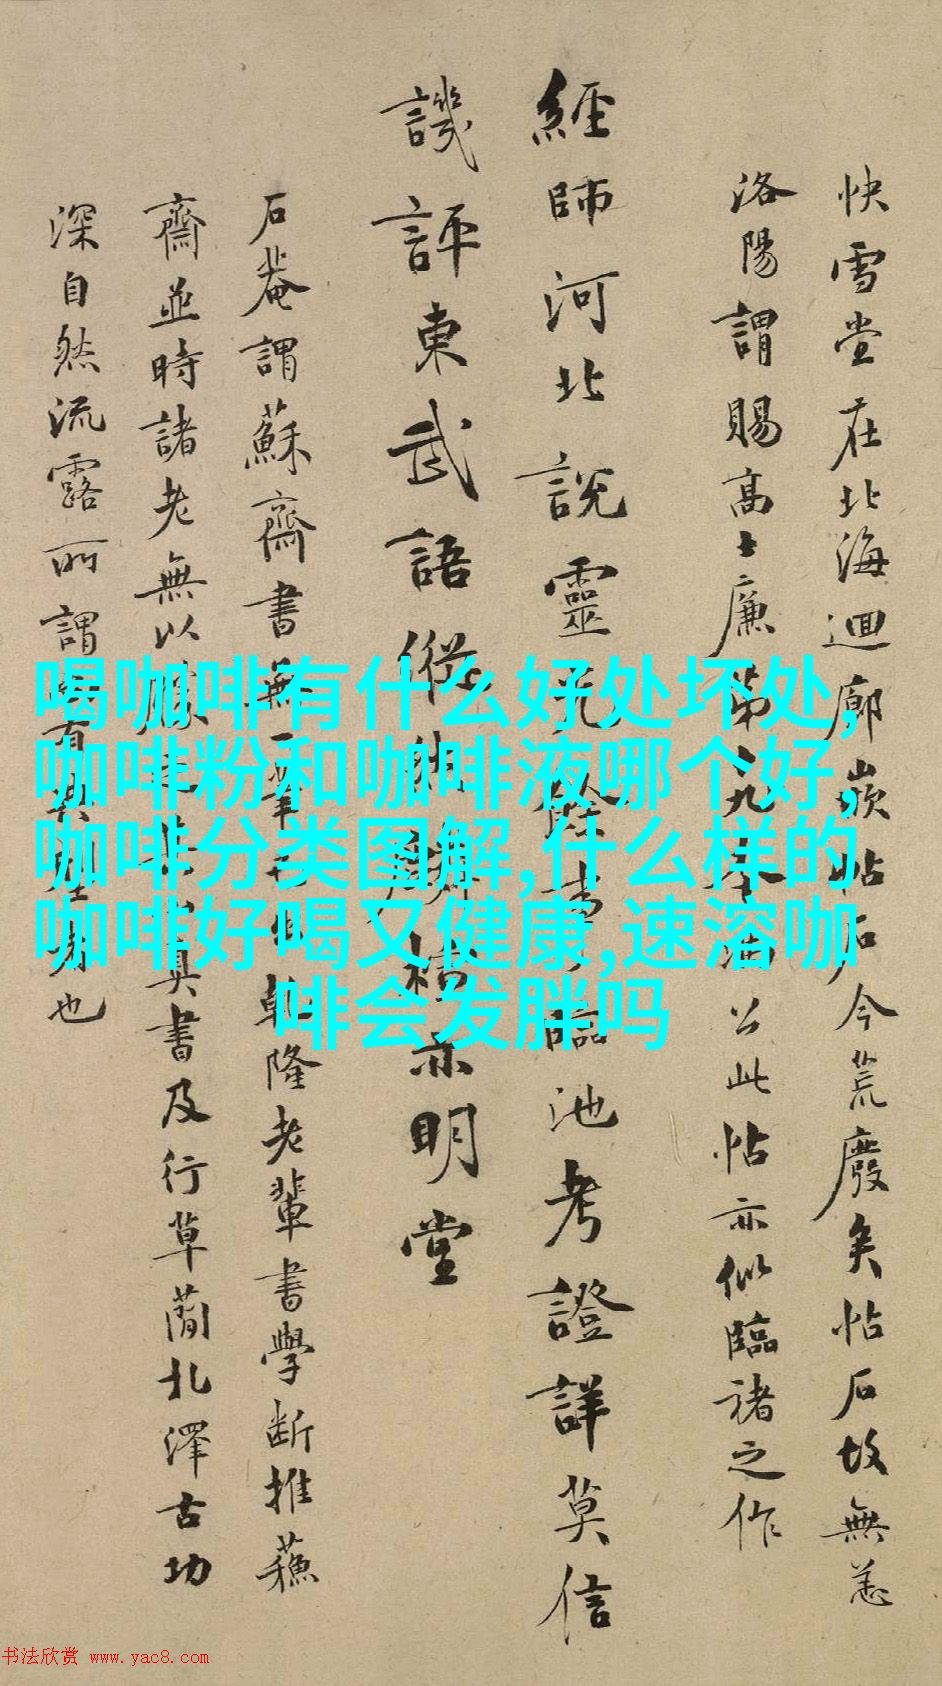 快雪堂在北海迴廊嵌帖石今荒廢矣帖石故無恙
洛陽謂賜高士廉第九本公此帖亦似臨褚之作
經師河北說靈光餘事臨池考證詳莫信
譏評東武語縱亦明堂
石菴謂蘇齋書無一筆乾隆老輩書學斷推蘇
齋並時諸老無以勝之真書及行草蘭北澤古功
深自然流露所謂有其也
喝咖啡有什么好处坏处,
咖啡粉和咖啡液哪个好,
咖啡分类图解,什么样的
咖啡好喝又健康,速溶咖
啡会发胖吗
书法欣赏 www.yac8.com